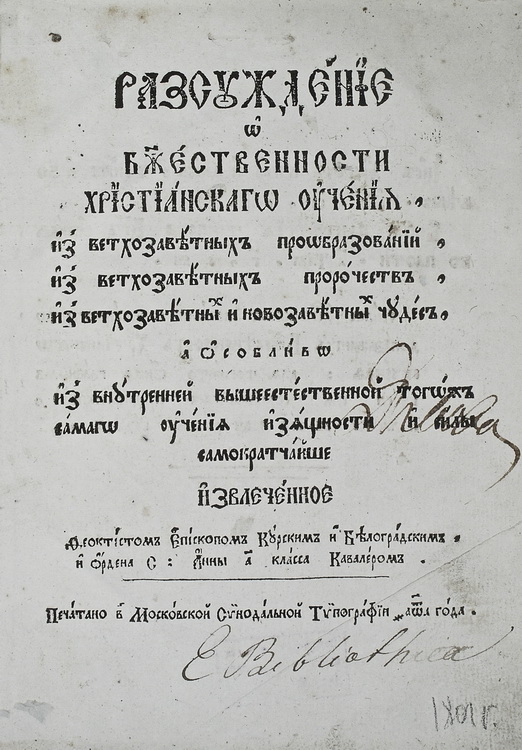 РАЗСꙋЖДЕ́НЇЕ
ѡ҆
БЖ҃Е́СТВЕННОСТИ
ХРІ́СТЇА́НСКАГѠ ОУ҆ЧЕ́НЇЯ,
и҆з̾ ветхозавѣ́тныхъ проѡбразова́нїй,
и҆з̾ ветхозавѣ́тныхъ проро́чествъ,
и҆з̾ ветхозавѣ́тныхъ и҆ новозавѣ́тныхъ чꙋде́съ,
а҆ ѻ҆со́бливѡ
и҆з̾ внꙋ́тренней вышеесте́ственной тогѡ́жъ
са́магѡ оу҆че́нїя и҆зѧ́щности и҆ силы
самократча́йше
и҆звлече́нное
Ѳеокті́стомъ Е҆пі́скопомъ Кꙋ́рскимъ и҆ Бѣлогра́дскимъ,
и҆ О҆́рдена С: А҆́нны а҃ кла́сса Кавале́ромъ.
Печа́тано в̾ Моско́вской Сѵнода́льной Тѵпогра́фїи ҂аѿа го́да.
E Bibliotheca
1801 г.